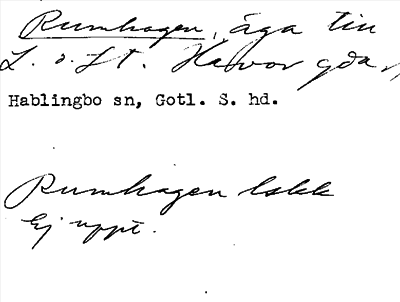 Rumhagen, äga till
L. o. St. Havor gda
Hablingbo sn, Gotl. S. hd.
Rumhagen lskk
Ej uppt.